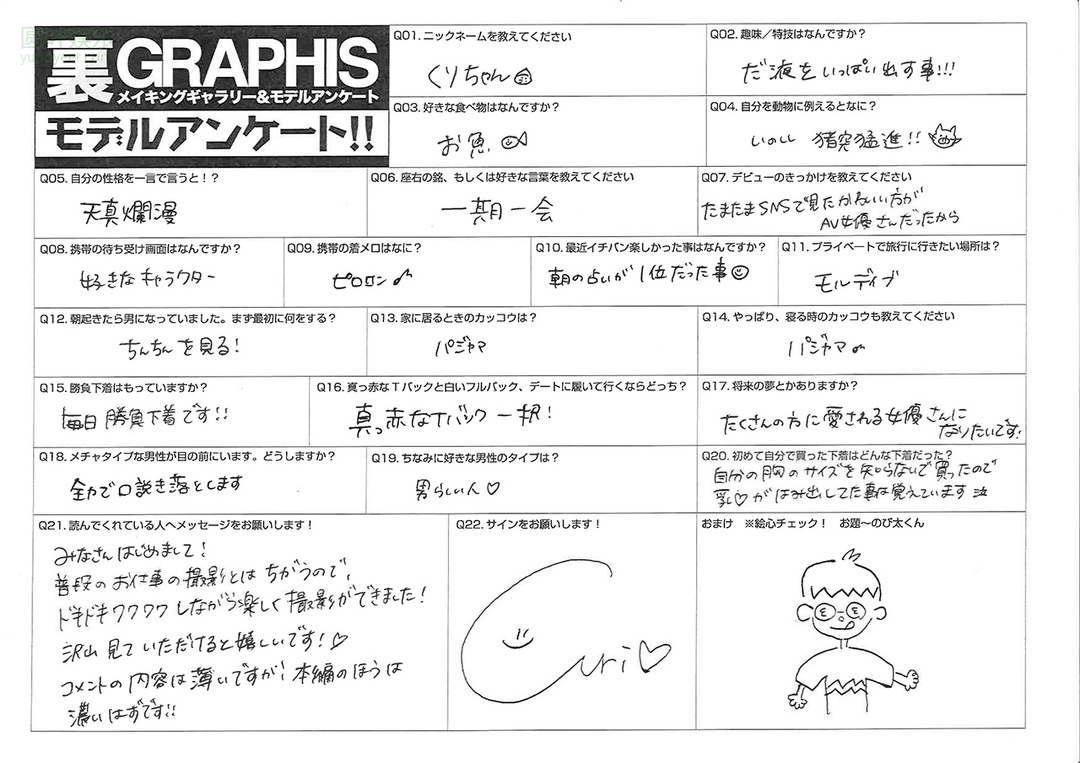 裏GRAPHIS
メイキングギャラリー&モデルアンケート
モデルアンケート!!
Q01. ニックネームを教えてください
くりちゃん
Q02. 趣味／特技はなんですか？
だ液をいっぱい出す事!!!
Q03. 好きな食べ物はなんですか？
お魚
Q04. 自分を動物に例えるとなに？
いのしし 猪突猛進!!
Q05. 自分の性格を一言で言うと！？
天真爛漫
Q06. 座右の銘、もしくは好きな言葉を教えてください
一期一会
Q07. デビューのきっかけを教えてください
たまたまSNSで見たかわいい方が
AV女優さんだったから
Q08. 携帯の待ち受け画面はなんですか？
好きなキャラクター
Q09. 携帯の着メロはなに？
ピロロン♪
Q10. 最近イチバン楽しかった事はなんですか？
朝の占いが1位だった事
Q11. プライベートで旅行に行きたい場所は？
モルディブ
Q12. 朝起きたら男になっていました。まず最初に何をする？
ちんちんを見る!
Q13. 家に居るときのカッコウは？
パジャマ
Q14. やっぱり、寝る時のカッコウも教えてください
パジャマ♪
Q15. 勝負下着はもっていますか？
毎日勝負下着です!!
Q16. 真っ赤なTバックと白いフルバック、デートに履いて行くならどっち？
真っ赤なTバック一択!
Q17. 将来の夢とかありますか？
たくさんの方に愛される女優さんに
なりたいです!
Q18. メチャタイプな男性が目の前にいます。どうしますか？
全力で口説き落とします
Q19. ちなみに好きな男性のタイプは？
男らしい人♡
Q20. 初めて自分で買った下着はどんな下着だった？
自分の胸のサイズを知らないで買ったので
乳♡がはみ出してた事は覚えています
Q21. 読んでくれている人へメッセージをお願いします！
みなさんはじめまして!
普段のお仕事の撮影とはちがうので、
ドキドキワクワクしながら楽しく撮影ができました!
沢山見ていただけると嬉しいです!♡
コメントの内容は薄いですが! 本編のほうは
濃いはずです!!
Q22. サインをお願いします！
Curi♡
おまけ ※絵心チェック！ お題〜のび太くん